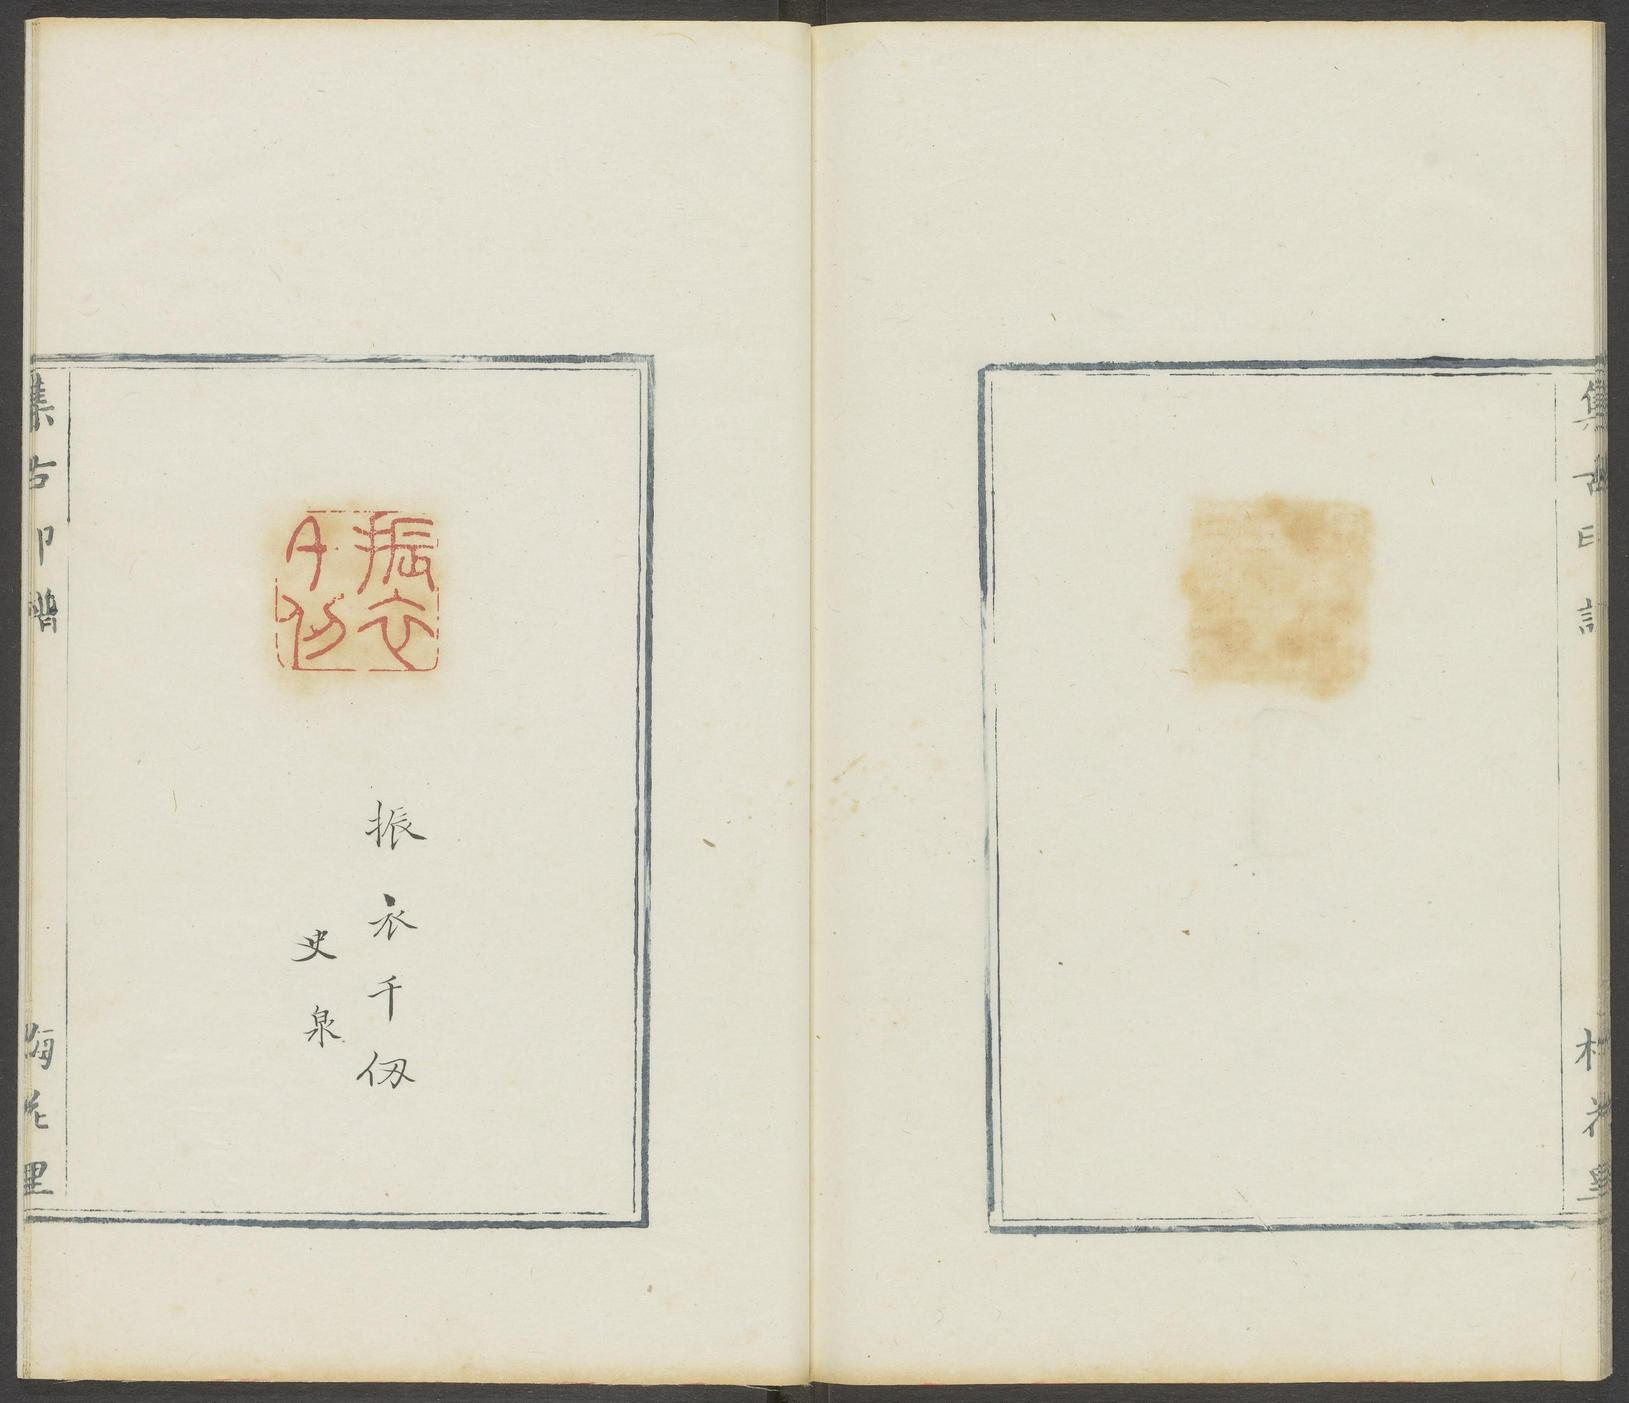 集古印譜
梅花里
振衣千仞
振衣千仭
史泉
集古印譜
梅花里